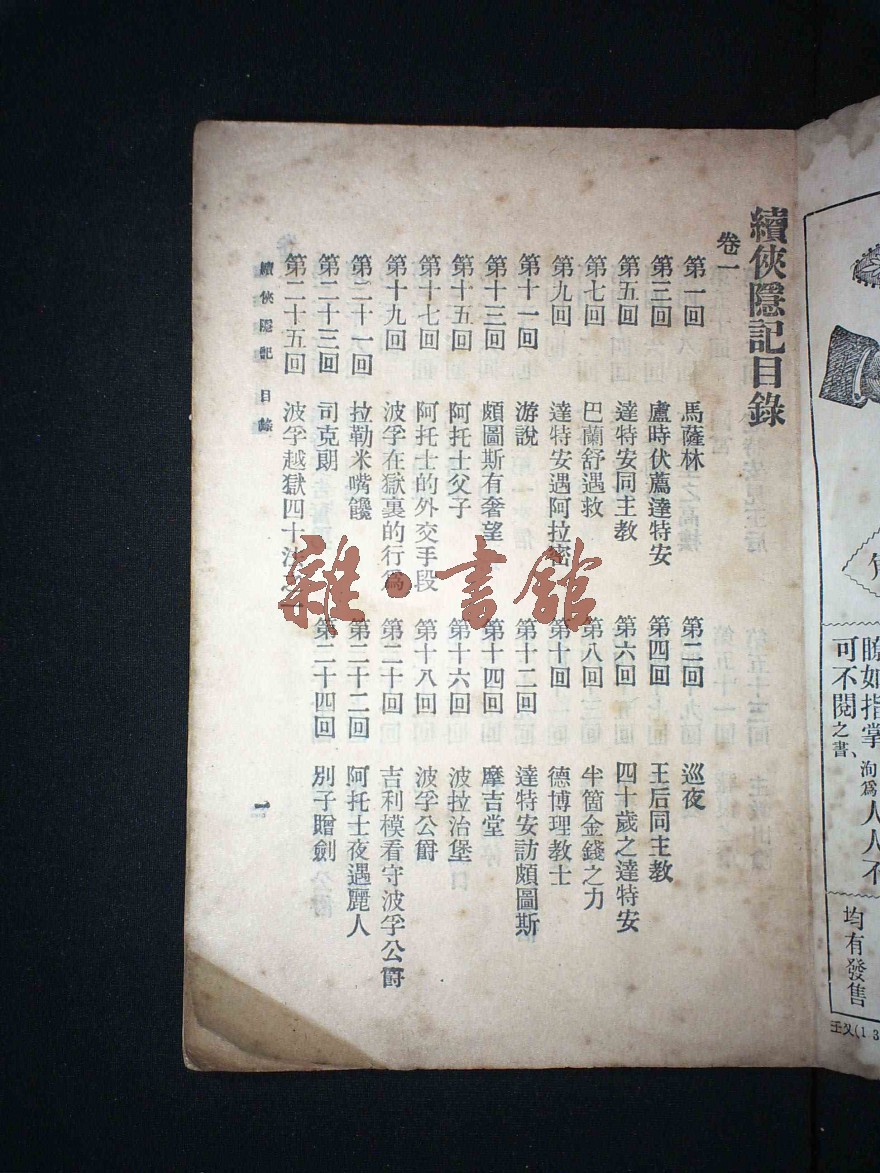 續俠隱記目錄
卷一
第一回 馬薩林 第二回 巡夜
第三回 盧時伏薦達特安 第四回 王后同主教
第五回 達特安同主教 第六回 四十歲之達特安
第七回 巴蘭舒遇救 第八回 半箇金錢之力
第九回 達特安遇阿拉密 第十回 德博理教士
第十一回 游說 第十二回 達特安訪頗圖斯
第十三回 頗圖斯有奢望 第十四回 摩吉堂
第十五回 阿托士父子 第十六回 波拉治堡
第十七回 阿托士的外交手段 第十八回 波孚公爵
第十九回 波孚在獄裏的行爲 第二十回 吉利模看守波孚公爵
第二十一回 拉勒米嘴饞 第二十二回 阿托士夜遇麗人
第二十三回 司克朗 第二十四回 別子贈劍
第二十五回 波孚越獄四十法之一
續俠隱記 目錄
一
雜·書館
瞭如指掌洵爲人人不
可不閱之書、
均有發售